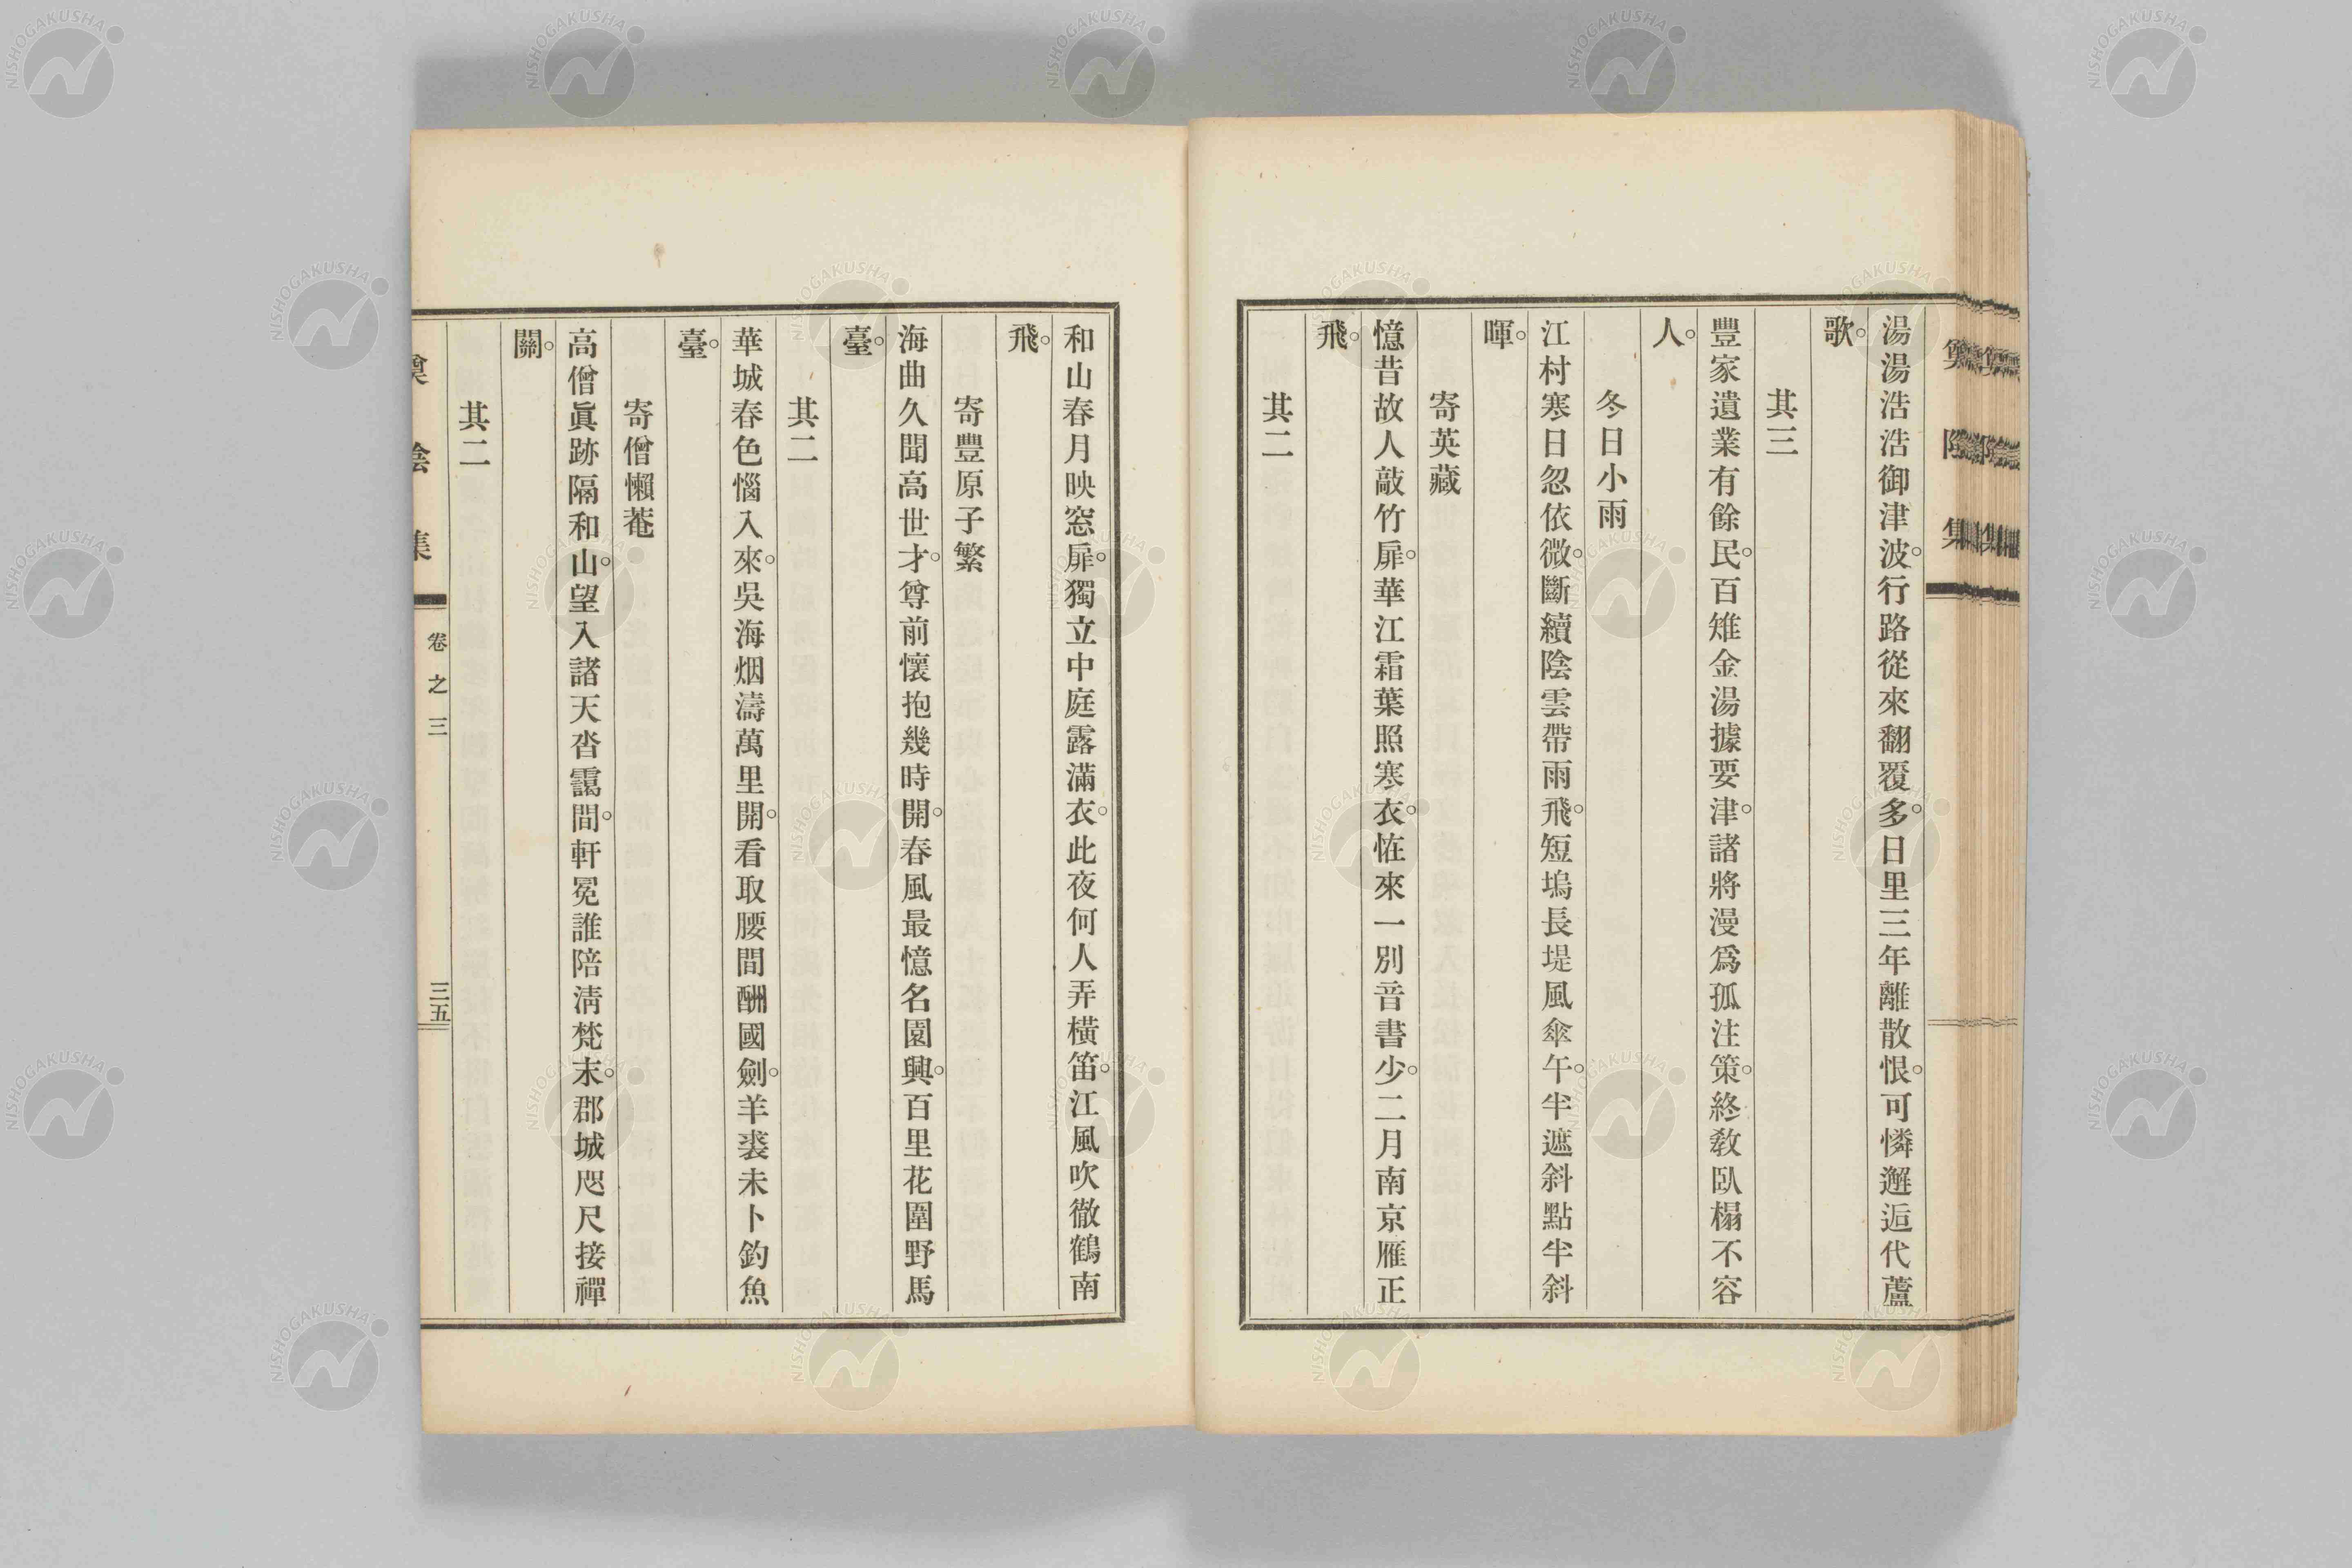 湯湯浩浩御津波。行路從來翻覆多。日里三年離散恨。可憐邂逅代蘆
歌。
其三
豐家遺業有餘民。百雉金湯據要津。諸將漫爲孤注策。終敎臥榻不容
人。
冬日小雨
江村寒日忽依微。斷續陰雲帶雨飛。短塢長堤風傘午。半遮斜點半斜
暉。
寄英藏
憶昔故人敲竹扉。華江霜葉照寒衣。恠來一別音書少。二月南京雁正
飛。
其二
和山春月映窓扉。獨立中庭露滿衣。此夜何人弄橫笛。江風吹徹鶴南
飛。
寄豐原子繁
海曲久聞高世才。尊前懷抱幾時開。春風最憶名園興。百里花圍野馬
臺。
其二
華城春色惱入來。吳海烟濤萬里開。看取腰間酬國劍。羊裘未卜釣魚
臺。
寄僧懶菴
高僧眞跡隔和山。望入諸天沓靄間。軒冕誰陪淸梵末。郡城咫尺接禪
關。
其二
卷之三
三五
NISHOGAKUSHA